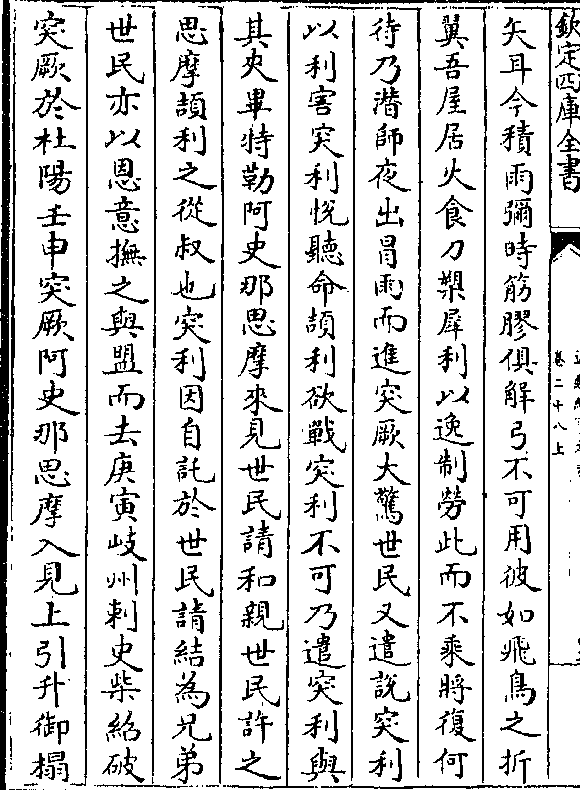 欽定四庫全書
卷二十八上
矢耳今積雨彌時筋膠俱解弓不可用彼如飛鳥之折
翼吾屋居火食刀槊犀利以逸制勞此而不乘將復何
待乃潛師夜出冒雨而進突厥大驚世民又遣說突利
以利害突利恱聽命頡利欲戰突利不可乃遣突利與
其夾畢特勒阿史那思摩來見世民請和親世民許之
思摩頡利之從叔也突利因自託於世民請結為兄弟
世民亦以恩意撫之與盟而去庚寅岐州刺史柴紹破
突厥於杜陽壬申突厥阿史那思摩入見上引升御榻